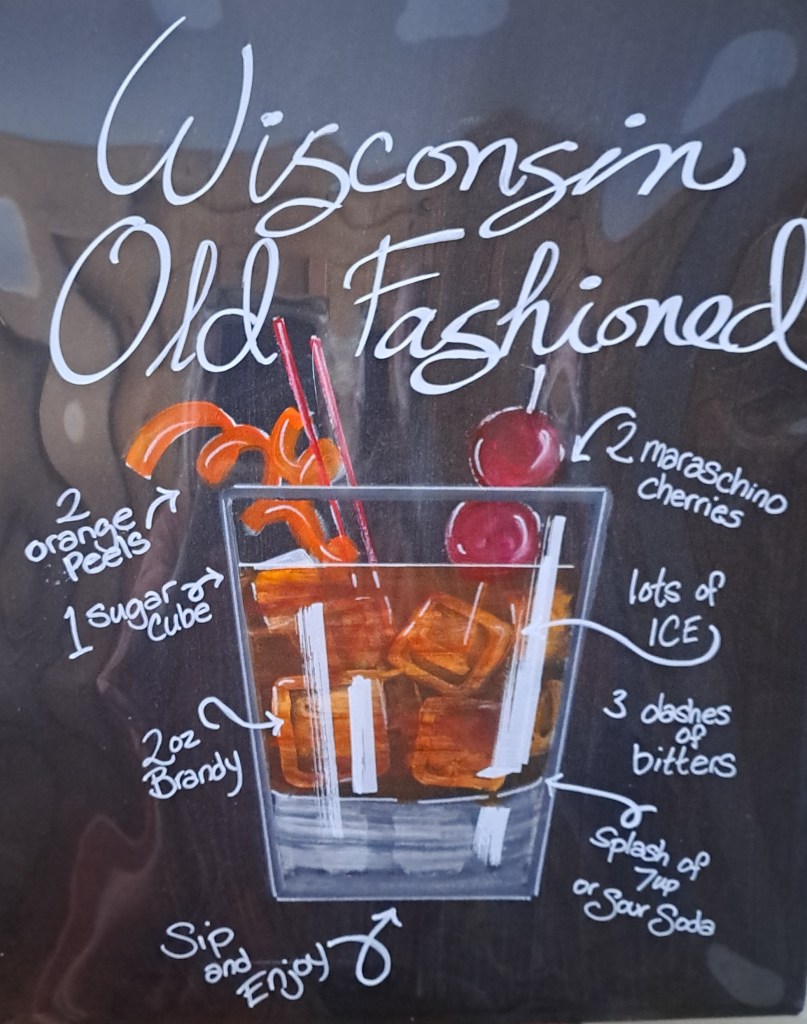 Wisconsin
Old Fashioned
2 maraschino
cherries
2
orange
Peels
1 Sugar
Cube
lots of
ICE
3 dashes
of
bitters
2oz
Brandy
Splash of
7up
or Sour Soda
Sip
and
Enjoy